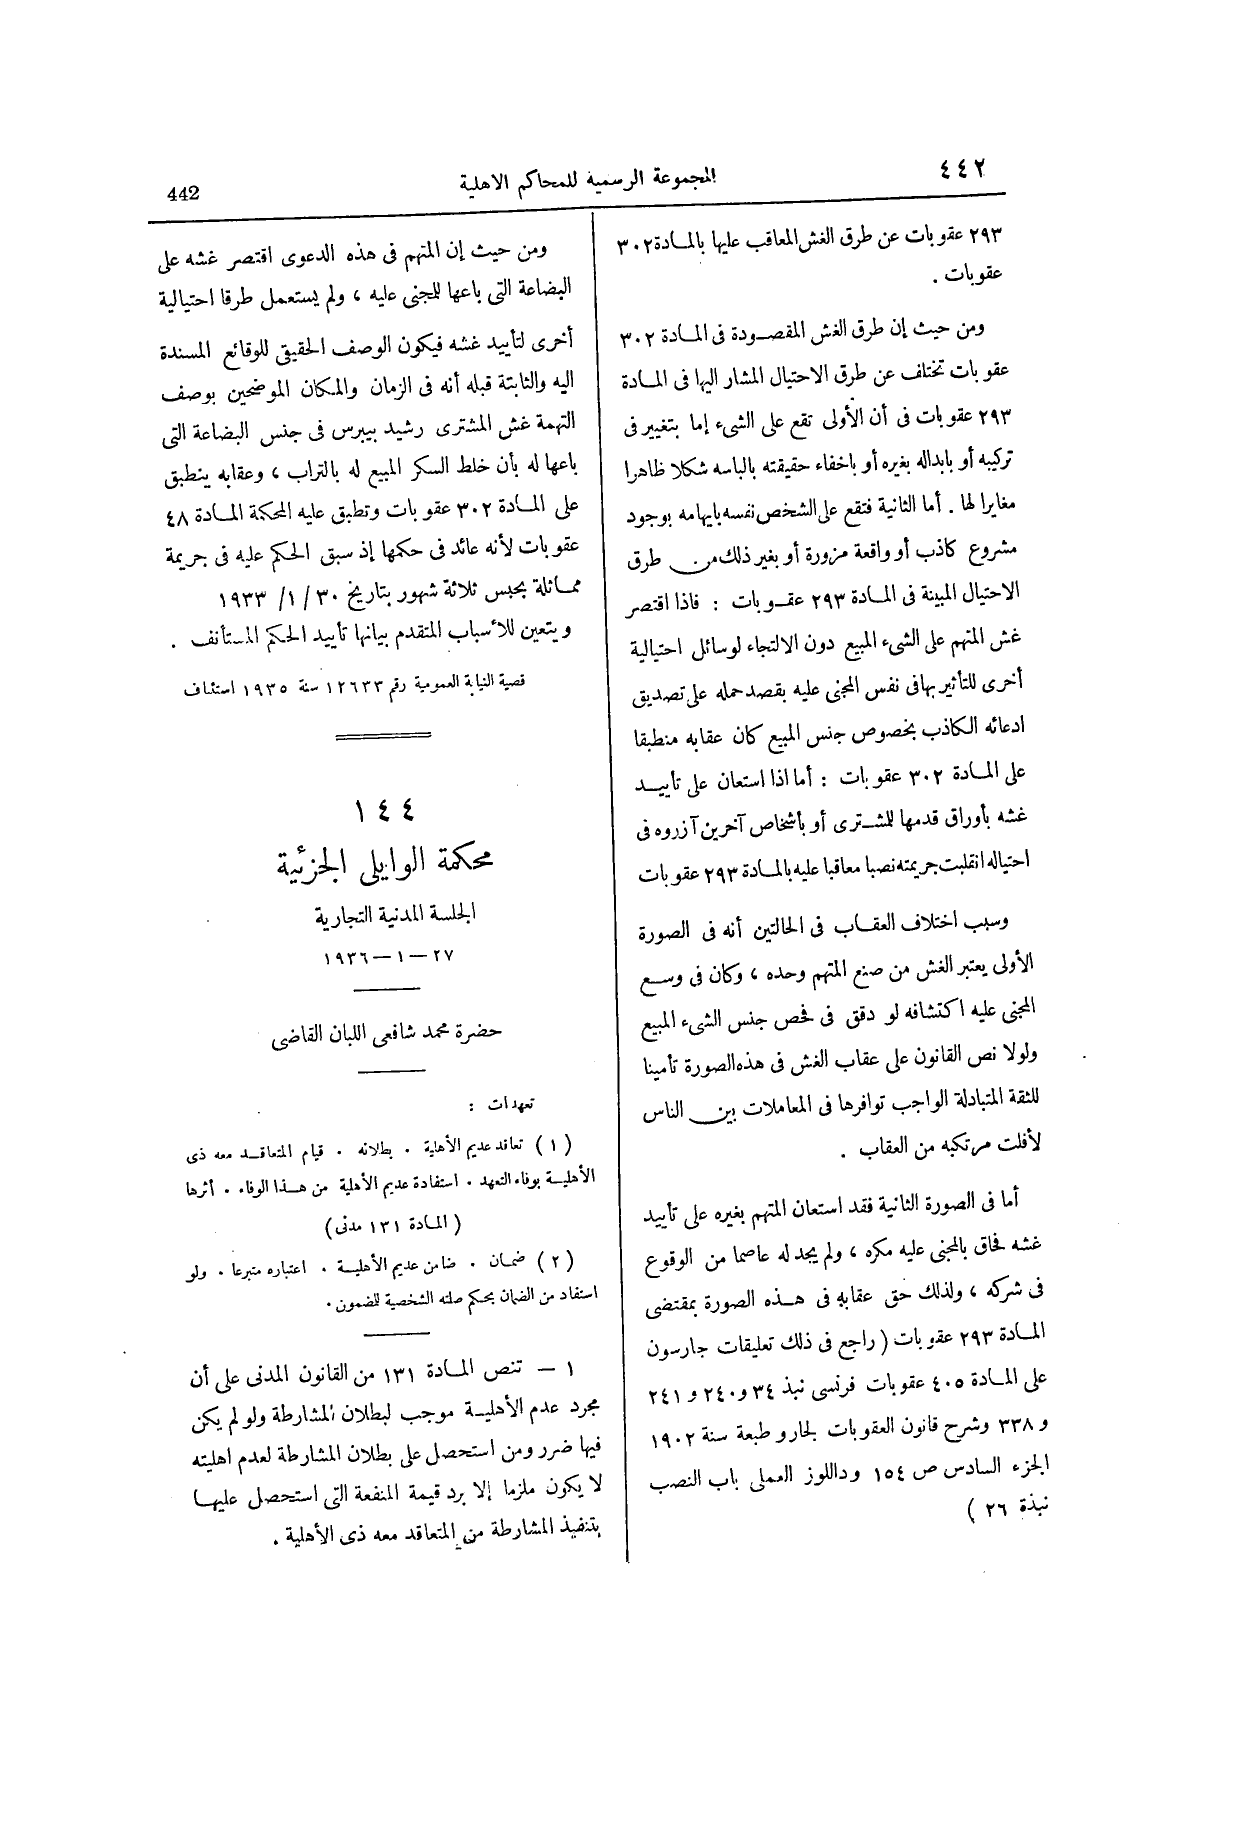 ٤٤٢
المجموعة الرسمية للمحاكم الاهلية
442
٢٩٣ عقوبات عن طرق الغش المعاقب عليها بالمادة ٣٠٢
عقوبات .
ومن حيث إن طرق الغش المقصودة فى المادة ٣٠٢
عقوبات تختلف عن طرق الاحتيال المشار اليها فى المادة
٢٩٣ عقوبات فى أن الأولى تقع على الشىء إما بتغيير فى
تركيبه أو بابداله بغيره أو باخفاء حقيقته بالباسه شكلا ظاهرا
مغايرا لها . أما الثانية فتقع على الشخص نفسه بايهامه بوجود
مشروع كاذب أو واقعة مزورة أو بغير ذلك من طرق
الاحتيال المبينة فى المادة ٢٩٣ عقوبات : فاذا اقتصر
غش المتهم على الشىء المبيع دون الالتجاء لوسائل احتيالية
أخرى للتأثير بها فى نفس المجنى عليه بقصد حمله على تصديق
ادعائه الكاذب بخصوص جنس المبيع كان عقابه منطبقا
على المادة ٣٠٢ عقوبات : أما اذا استعان على تأييد
غشه بأوراق قدمها للمشترى أو بأشخاص آخرين آزروه فى
احتياله انقلبت جريمته نصبا معاقبا عليه بالمادة ٢٩٣ عقوبات
وسبب اختلاف العقاب فى الحالتين أنه فى الصورة
الأولى يعتبر الغش من صنع المتهم وحده ، وكان فى وسع
المجنى عليه اكتشافه لو دقق فى فحص جنس الشىء المبيع
ولولا نص القانون على عقاب الغش فى هذه الصورة تأمينا
للثقة المتبادلة الواجب توافرها فى المعاملات بين الناس
لأفلت مرتكبه من العقاب .
أما فى الصورة الثانية فقد استعان المتهم بغيره على تأييد
غشه فحاق بالمجنى عليه مكره ، ولم يجد له عاصما من الوقوع
فى شركه ، ولذلك حق عقابه فى هذه الصورة بمقتضى
المادة ٢٩٣ عقوبات ( راجع فى ذلك تعليقات جارسون
على المادة ٤٠٥ عقوبات فرنسى نبذ ٣٤ و٢٤٠ و ٢٤١
و ٣٣٨ وشرح قانون العقوبات لجارو طبعة سنة ١٩٠٢
الجزء السادس ص ١٥٤ وداللوز العملى باب النصب
نبذة ٢٦ )
ومن حيث إن المتهم فى هذه الدعوى اقتصر غشه على
البضاعة التى باعها للمجنى عليه ، ولم يستعمل طرقا احتيالية
أخرى لتأييد غشه فيكون الوصف الحقيقى للوقائع المسندة
اليه والثابتة قبله أنه فى الزمان والمكان الموضحين بوصف
التهمة غش المشترى رشيد بيبرس فى جنس البضاعة التى
باعها له بأن خلط السكر المبيع له بالتراب ، وعقابه ينطبق
على المادة ٣٠٢ عقوبات وتطبق عليه المحكمة المادة ٤٨
عقوبات لأنه عائد فى حكمها إذ سبق الحكم عليه فى جريمة
مماثلة بحبس ثلاثة شهور بتاريخ ٣٠ / ١/ ١٩٣٣
ويتعين للأسباب المتقدم بيانها تأييد الحكم المستأنف .
قضية النيابة العمومية رقم ١٢٦٣٣ سنة ١٩٣٥ استئناف
١٤٤
محكمة الوايلى الجزئية
الجلسة المدنية التجارية
٢٧ – ١ – ١٩٣٦
حضرة محمد شافعى اللبان القاضى
تعهدات :
( ١ ) تعاقد عديم الأهلية . بطلانه . قيام المتعاقد معه ذى
الأهلية بوفاء التعهد . استفادة عديم الأهلية من هذا الوفاء . أثرها
( المادة ١٣١ مدنى )
( ٢ ) ضمان . ضامن عديم الأهلية . اعتباره متبرعا . ولو
استفاد من الضمان بحكم صلته الشخصية للمضمون .
١ – تنص المادة ١٣١ من القانون المدنى على أن
مجرد عدم الأهلية موجب لبطلان المشارطة ولو لم يكن
فيها ضرر ومن استحصل على بطلان المشارطة لعدم اهليته
لا يكون ملزما إلا برد قيمة المنفعة التى استحصل عليها
بتنفيذ المشارطة من المتعاقد معه ذى الأهلية .